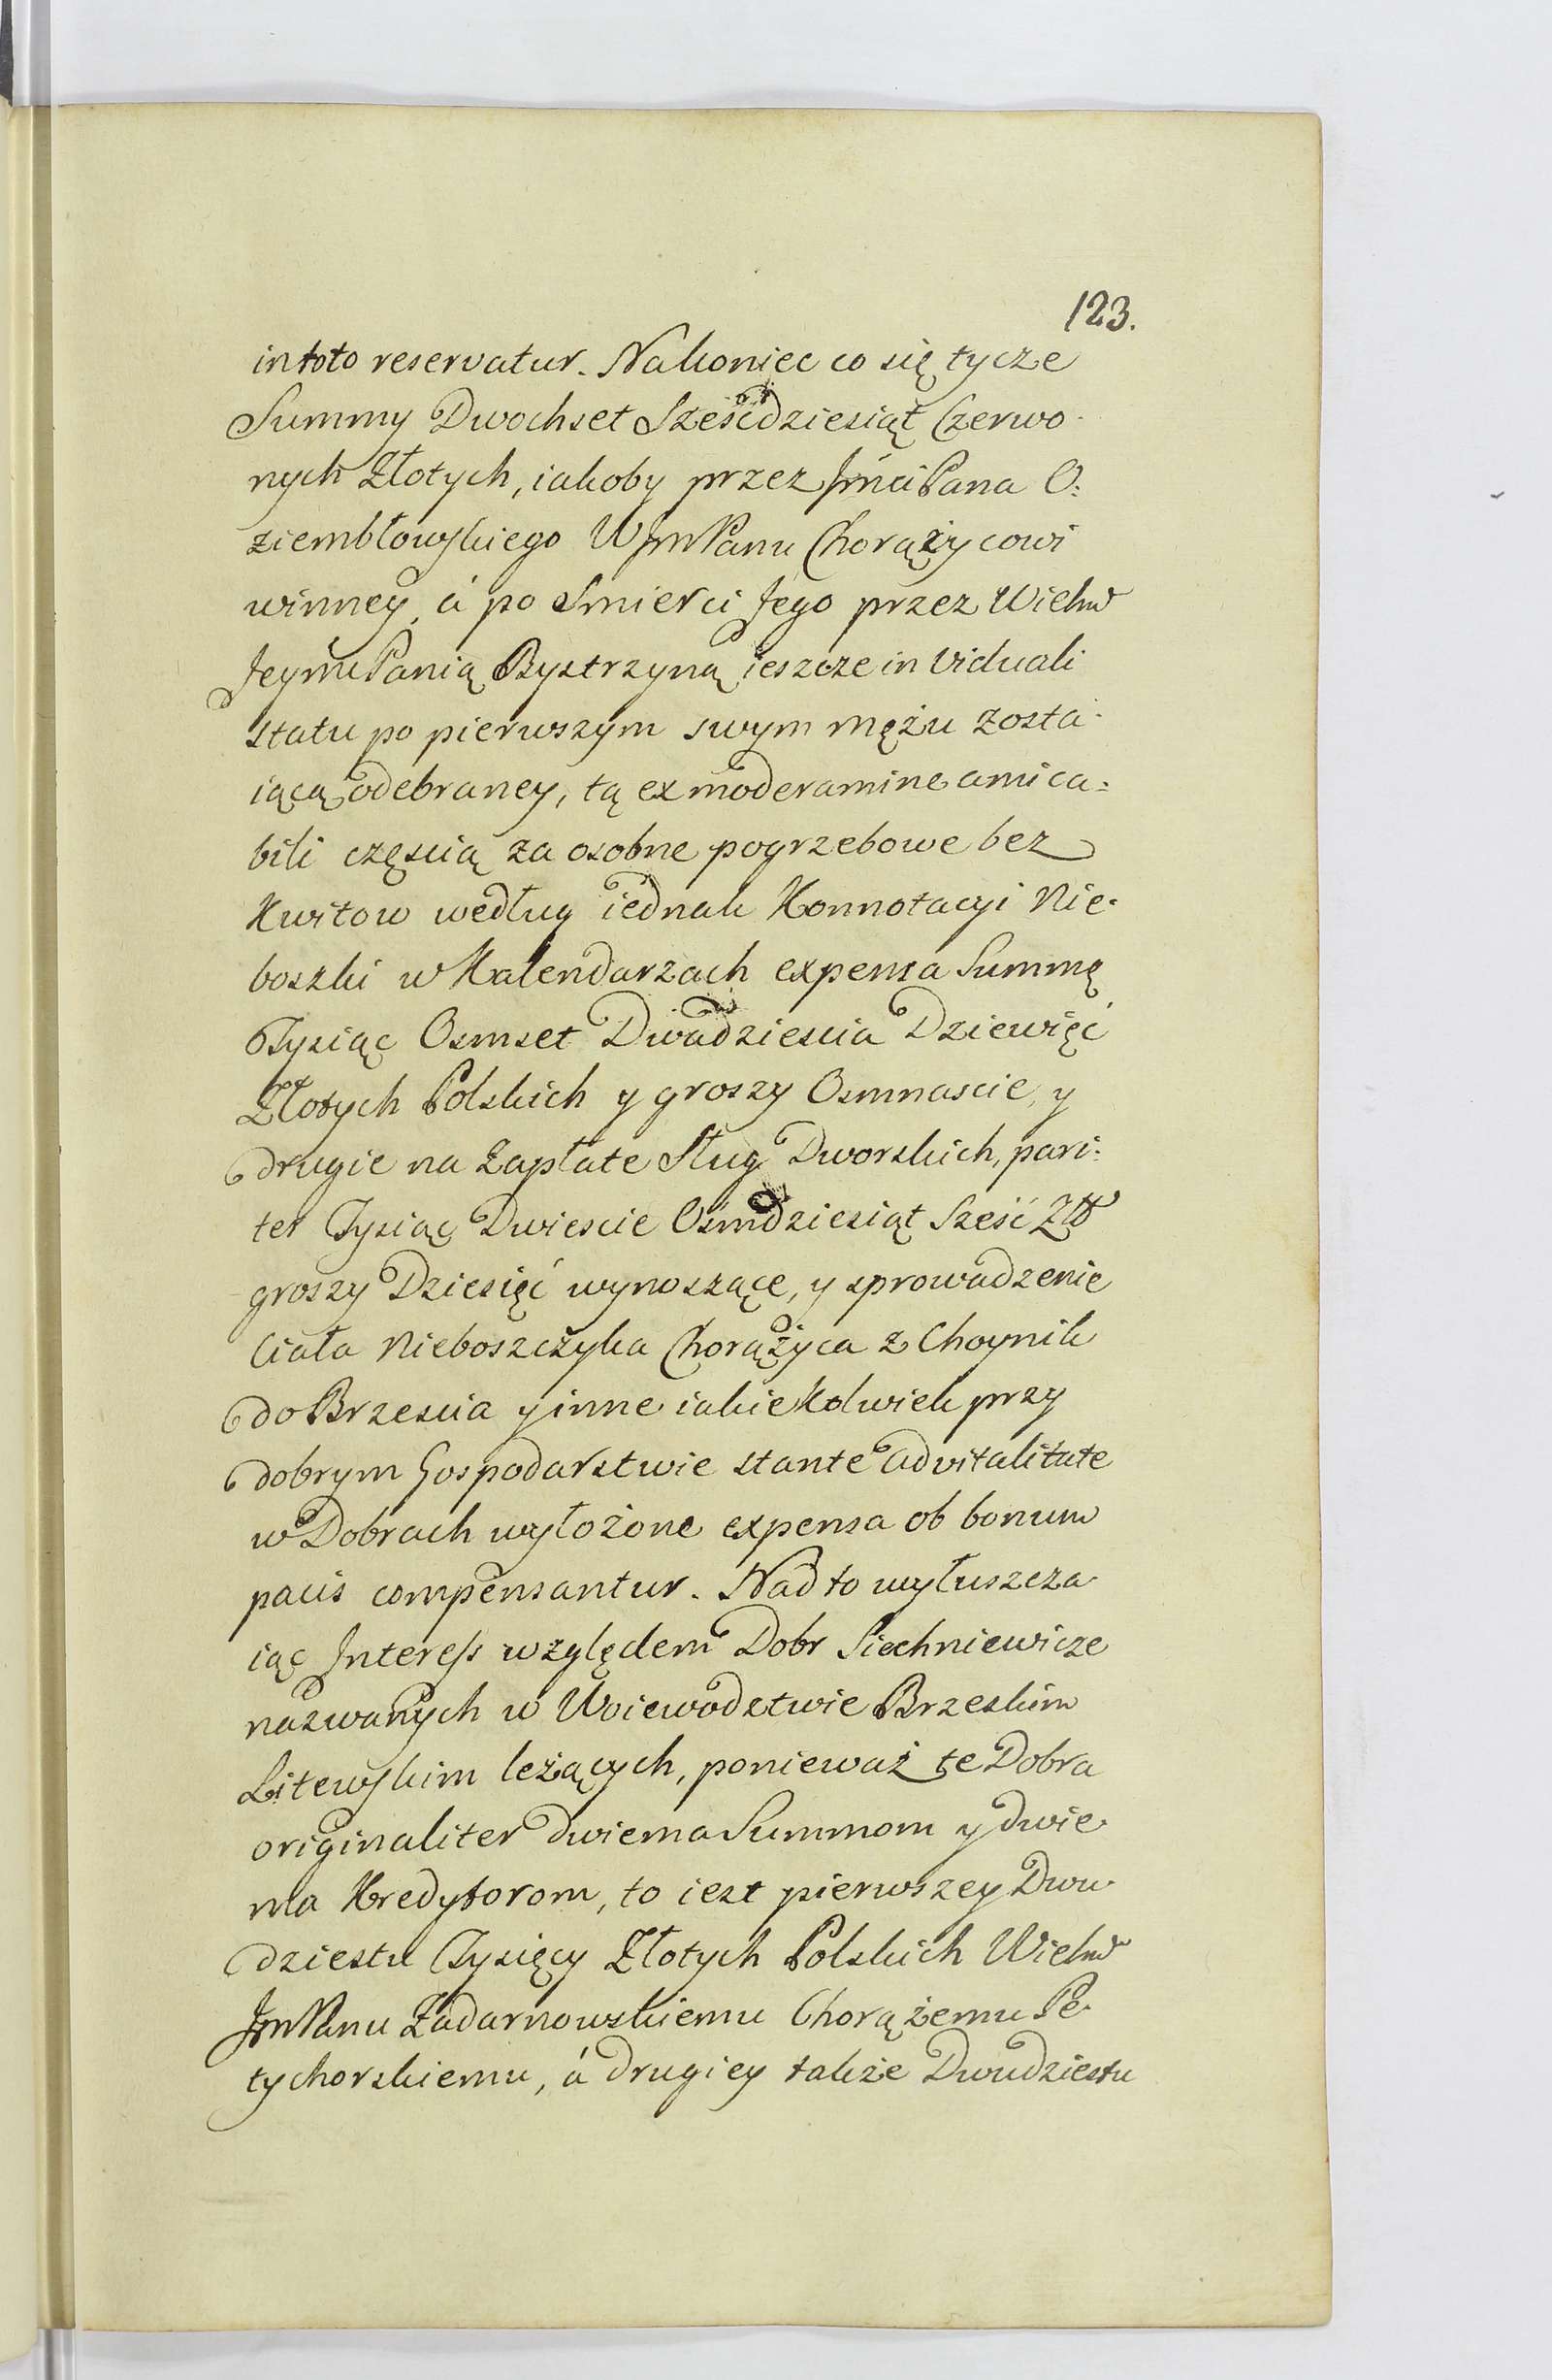 123.
in toto reservatur. Nakoniec co się tycze
Summy Dwochset Sześćdziesiąt Czerwo-
nych Złotych, iakoby przez Jmći Pana O:
ziembłowskiego WJmPanu Chorążycowi
winney, á po Smierci Jego przez Wielm
Jeymć Panią Bystrzyną ieszcze in viduali
statu po pierwszym swym mężu zosta-
iącą odebraney, tą ex moderamine amica:
bili częscią za osobne pogrzebowe bez
Kwitow według iednak Konnotacyi Nie-
boszki w Kalendarzach expensa Summę
Tysiąc Osmset Dwadziescia Dziewięć
Złotych Polskich y groszy Osmnascie, y
drugie na Zapłate Sług Dworskich, pari:
ter Tysiąc Dwiescie Osmdziesiąt Sześć Złł
groszy Dziesięć wynoszące, y sprowadzenie
Ciała Nieboszczyka Chorążyca z Choynik
do Brzescia y inne iakiekolwiek przy
dobrym Gospodarstwie stante advitalitate
w Dobrach wyłożone expensa ob bonum
pacis compensantur. Nad to wyłuszcza-
iąc Interess względem Dobr Siechniewicze
nazwanych w Woiewodztwie Brzeskim
Litewskim leżących, ponieważ te Dobra
originaliter dwiema Summom y dwie-
ma Kredytorom, to iest pierwszey Dwu-
dziestu Tysięcy Złotych Polskich Wielm
JmPanu Zadarnowskiemu Chorążemu Pe-
tychorskiemu, á drugiey także Dwudziestu